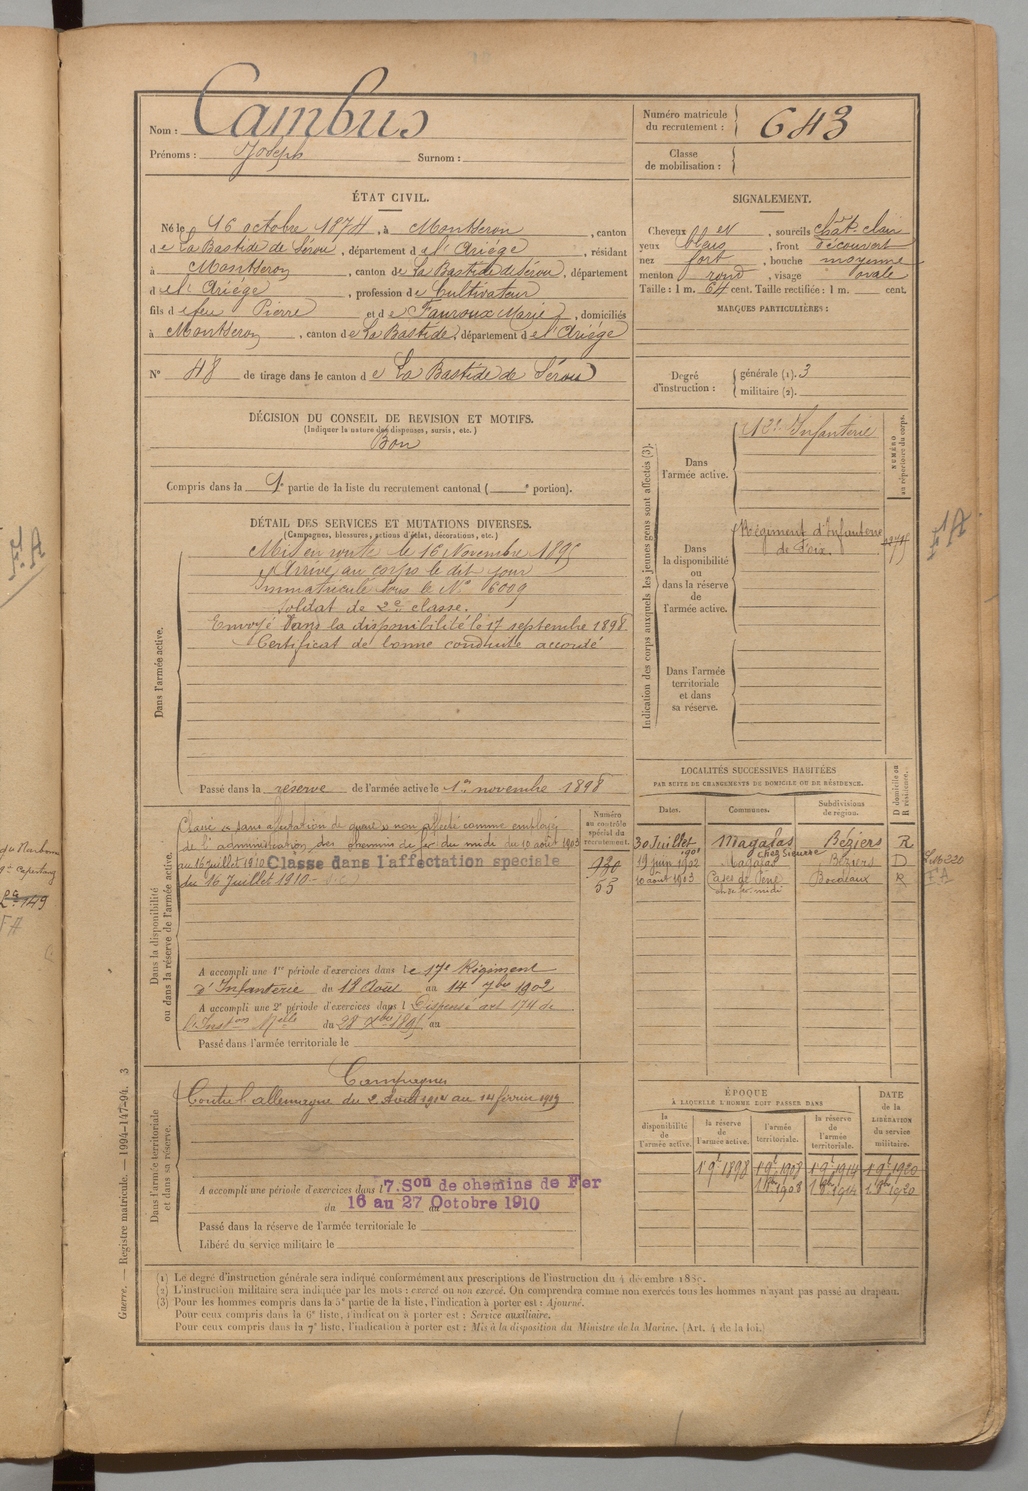 Nom : Cambus
Prénoms : Joseph Surnom :
Numéro matricule du recrutement : 643
Classe de mobilisation :
ÉTAT CIVIL.
Né le 16 octobre 1874, à Montseron, canton
de La Bastide de Sérou, département de l'Ariège, résidant
à Montseron, canton de La Bastide de Sérou, département
d el' Ariège, profession de Cultivateur
fils de feu Pierre et de Fauroux Marie, domiciliés
à Montseron, canton de La Bastide, département de l'Ariège
N° 48 de tirage dans le canton de La Bastide de Sérou
SIGNALEMENT.
Cheveux et, sourcils chât. clair
yeux bleus, front découvert
nez fort, bouche moyenne
menton rond, visage ovale
Taille : 1 m. 64 cent. Taille rectifiée : 1 m. cent.
MARQUES PARTICULIÈRES :
Degré d'instruction : générale (1). 3
militaire (2).
DÉCISION DU CONSEIL DE REVISION ET MOTIFS.
(Indiquer la nature des dispenses, sursis, etc.)
Bon
Compris dans la 1e partie de la liste du recrutement cantonal ( e portion).
DÉTAIL DES SERVICES ET MUTATIONS DIVERSES.
(Campagnes, blessures, actions d'éclat, décorations, etc.)
Dans l'armée active.
Mis en route le 16 Novembre 1895
Arrivé au corps le dit jour
Immatriculé sous le N° 6009
Soldat de 2e classe.
Envoyé dans la disponibilité le 17 septembre 1898
Certificat de bonne conduite accordé
Passé dans la réserve de l'armée active le 1er novembre 1898
Indication des corps auxquels les jeunes gens sont affectés (3).
NUMÉRO au répertoire du corps.
Dans l'armée active.
Infanterie
Dans la disponibilité ou dans la réserve de l'armée active.
Régiment d'Infanterie
de Foix.
Dans l'armée territoriale et dans sa réserve.
F.A
F.A
LOCALITÉS SUCCESSIVES HABITÉES
PAR SUITE DE CHANGEMENTS DE DOMICILE OU DE RÉSIDENCE.
Dates. Communes. Subdivisions de région. D domicile ou R résidence.
30 Juillet 1901 Magalas Béziers R
chez Sicurre
19 juin 1902 Magalas Béziers D
10 août 1903 Cases de Pène Bordeaux R
FA
Dans la disponibilité ou dans la réserve de l'armée active.
Numéro au contrôle spécial du recrutement.
Classé « sans affectation de guerre » non affecté comme employé
de l'administration des chemins de fer du midi du 10 août 1903
au 16 juillet 1910 Classé dans l'affectation spéciale
du 16 Juillet 1910
55
A accompli une 1re période d'exercices dans le 17e Régiment
d'Infanterie du 18 Août au 14 7bre 1902
A accompli une 2e période d'exercices dans l Dispensé art 174 de
du 28 Xbre 1895 au
Passé dans l'armée territoriale le
Dans l'armée territoriale et dans sa réserve.
Campagnes
Contre l'allemagne du 2 Août 1914 au 14 février 1919
A accompli une période d'exercices dans l 7.Son de chemins de Fer
du 16 au 27 Octobre 1910
Passé dans la réserve de l'armée territoriale le
Libéré du service militaire le
ÉPOQUE
À LAQUELLE L'HOMME DOIT PASSER DANS
la disponibilité de l'armée active. la réserve de l'armée active. l'armée territoriale. la réserve de l'armée territoriale.
DATE de la LIBÉRATION du service militaire.
1 9bre 1898 1 9bre 1908 1 9bre 1914 1 9bre 1920
(1) Le degré d'instruction générale sera indiqué conformément aux prescriptions de l'instruction du 4 décembre 1889.
(2) L'instruction militaire sera indiquée par les mots : exercé ou non exercé. On comprendra comme non exercés tous les hommes n'ayant pas passé au drapeau.
(3) Pour les hommes compris dans la 5e partie de la liste, l'indication à porter est : Ajourné.
Pour ceux compris dans la 6e liste, l'indication à porter est : Service auxiliaire.
Pour ceux compris dans la 7e liste, l'indication à porter est : Mis à la disposition du Ministre de la Marine. (Art. 4 de la loi.)
Guerre. — Registre matricule. — 1994-147-94. 3